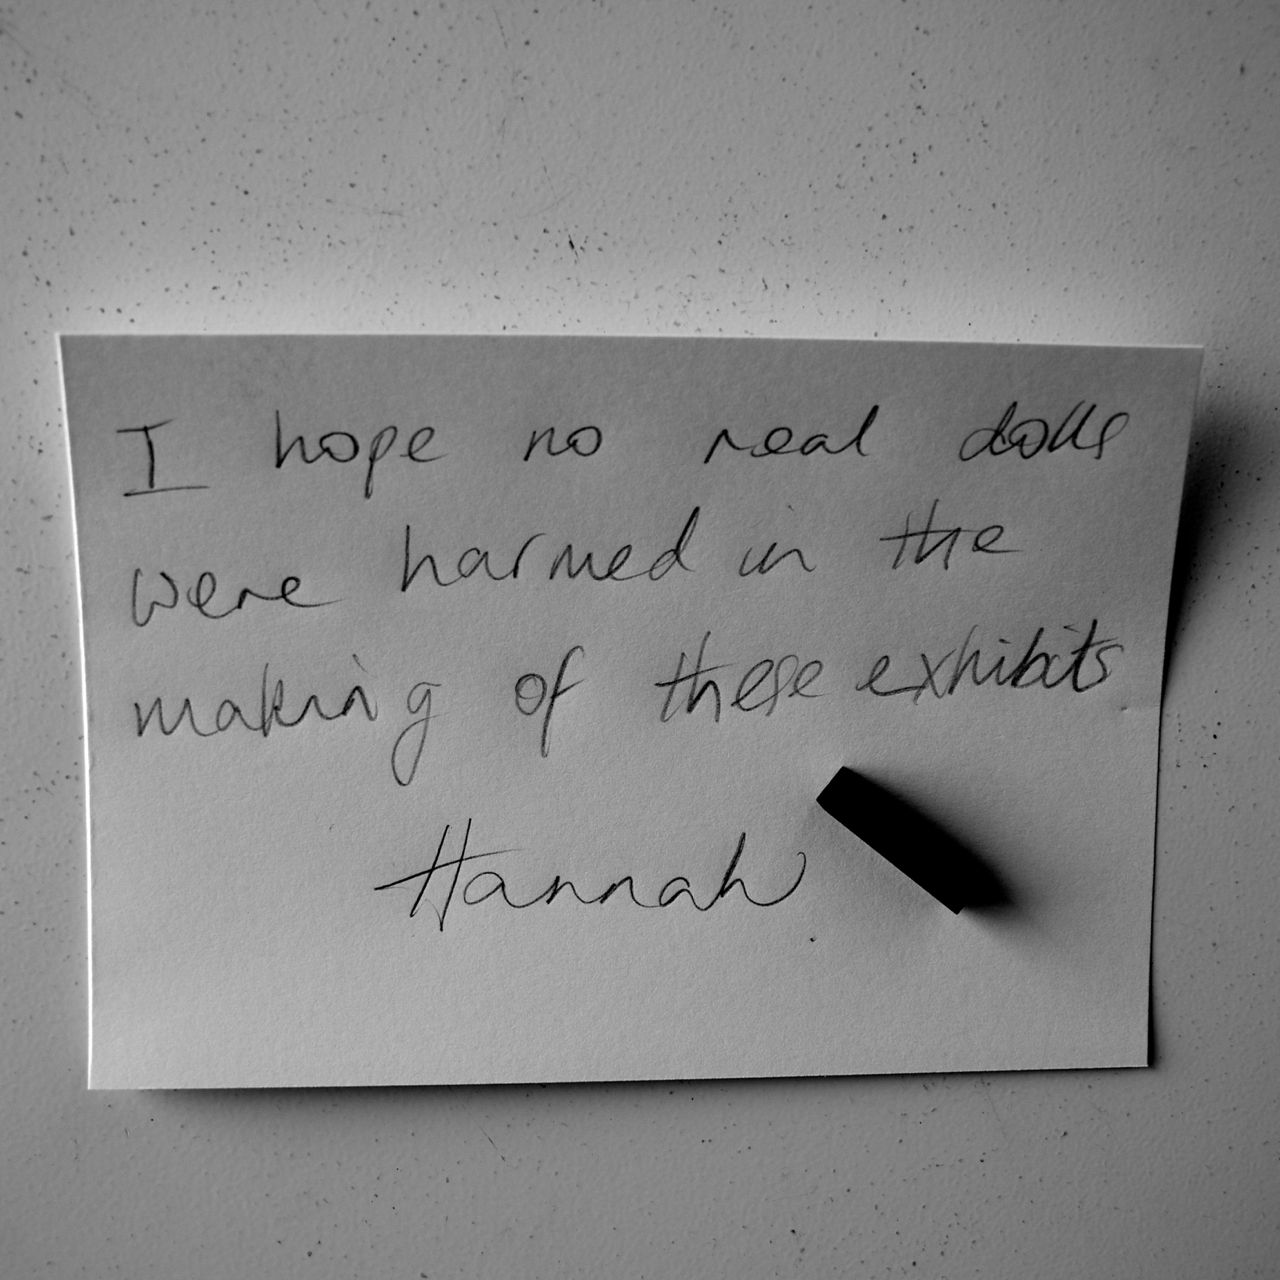 I hope no real dolls
were harmed in the
making of these exhibits.
Hannah